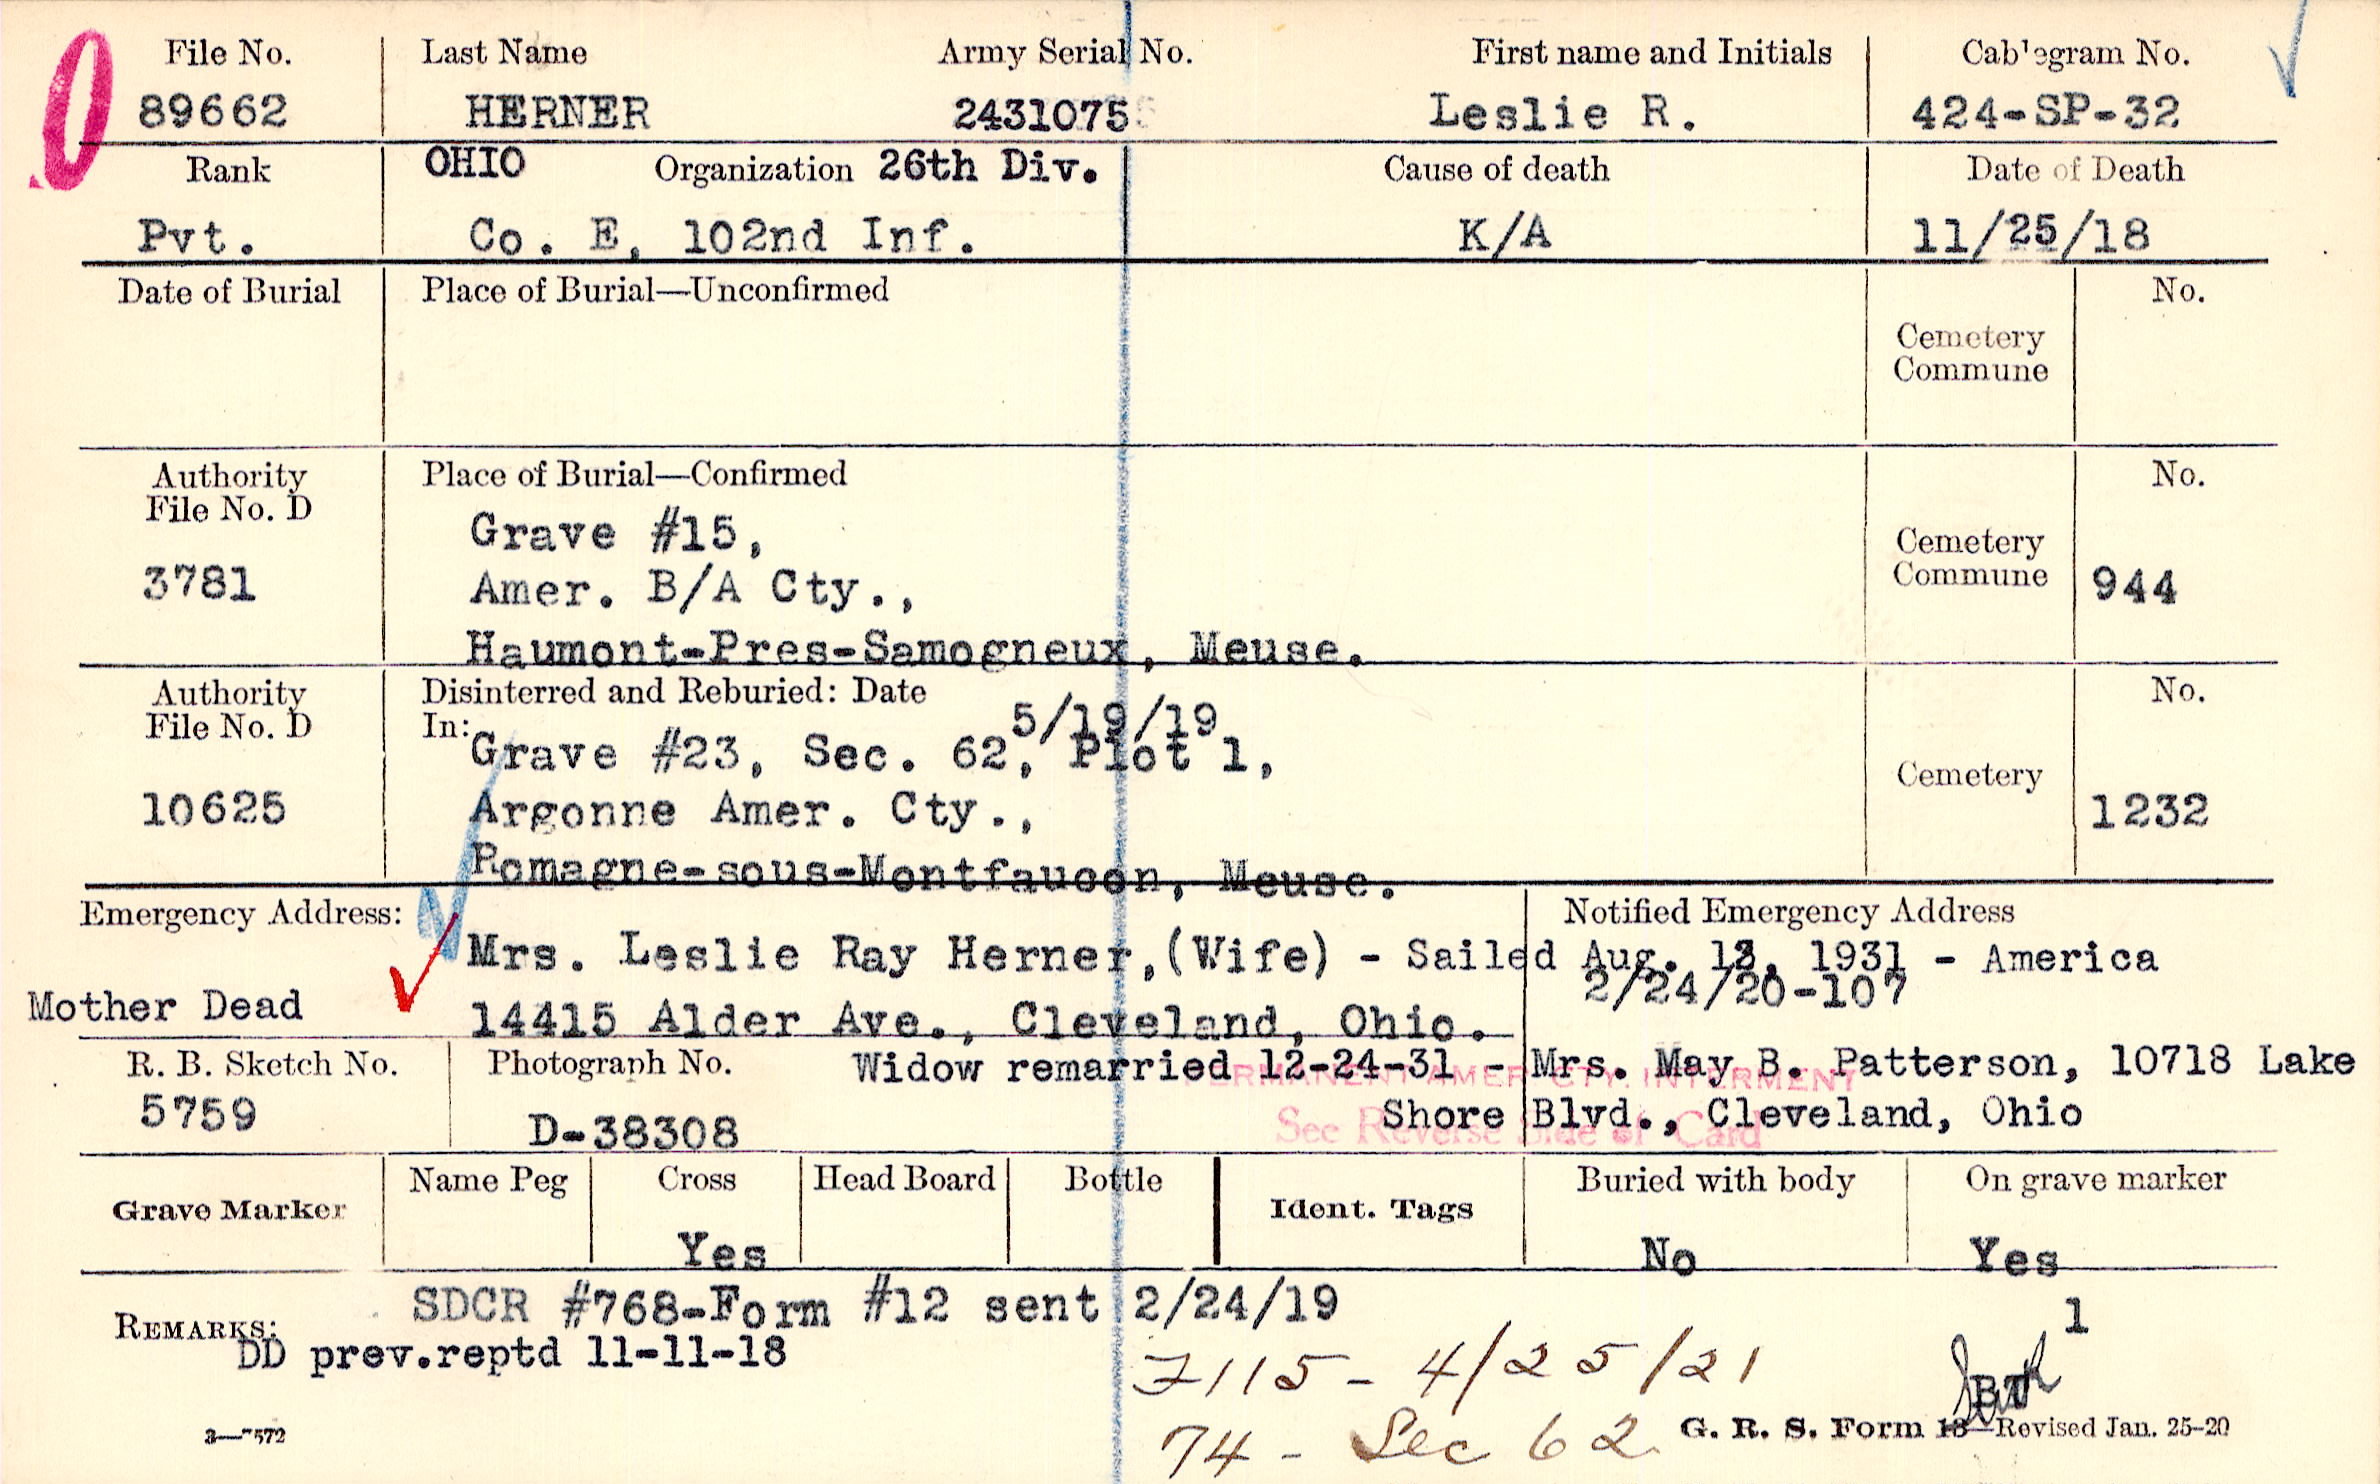 File No. Last Name Army Serial No. First name and Initials Cablegram No.
89662 HERNER 2431075 Leslie R. 424-SP-32
Rank OHIO Organization 26th Div. Cause of death Date of Death
Pvt. Co. E, 102nd Inf. K/A 11/25/18
Date of Burial Place of Burial—Unconfirmed No.
Cemetery
Commune
Authority Place of Burial—Confirmed No.
File No. D
Grave #15,
Cemetery
3781 Amer. B/A Cty., Commune 944
Haumont-Pres-Samogneux, Meuse.
Authority Disinterred and Reburied: Date No.
File No. D In: 5/19/19
Grave #23, Sec. 62, Plot 1,
Cemetery
10625 Argonne Amer. Cty., 1232
Romagne-sous-Montfaucon, Meuse.
Emergency Address: Notified Emergency Address
Mrs. Leslie Ray Herner, (Wife) - Sailed Aug. 1931 - America
2/24/20-107
Mother Dead 14415 Alder Ave., Cleveland, Ohio.
R. B. Sketch No. Photograph No. Widow remarried 12-24-31 - Mrs. May B. Patterson, 10718 Lake
PERMANENT AMER. CTY. INTERMENT
5759 D-38308 Shore Blvd., Cleveland, Ohio
See Reverse Side of Card
Name Peg Cross Head Board Bottle Buried with body On grave marker
Grave Marker Ident. Tags
Yes No Yes
SDCR #768-Form #12 sent 2/24/19 1
REMARKS:
DD prev.reptd 11-11-18
7115 - 4/25/21
74 - Sec 62
3—7572 G. R. S. Form 13—Revised Jan. 25-20